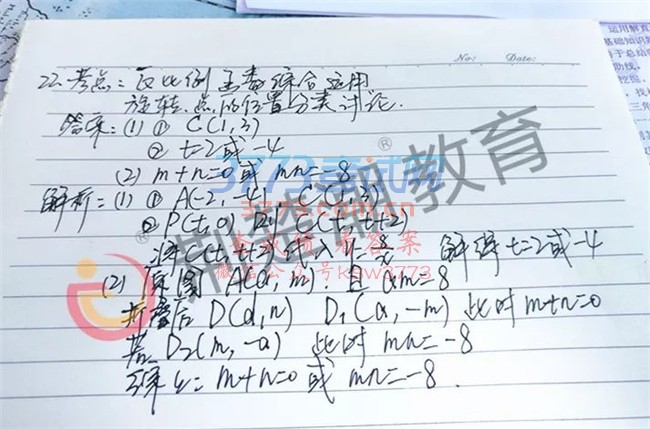 No: Date:
22.考点:反比例函数综合运用
旋转.点的位置分类讨论.
答案:(1)① C(1,3)
② t=2或-4
(2) m+n=0或 mn=-8
解析:(1)① A(-2,-4) C(1,3)
② P(t,0) 则 C(t,t+2)
将C(t,t+2)代入y=8/x 解得t=2或-4
(2) 如图 A(a,m). 且 am=8
折叠后 D(d,n) D₁(a,-m) 此时 m+n=0
若 D₂(m,-a) 此时 mn=-8
综上: m+n=0 或 mn=-8.
3773考试网
www.3773.com
荆楚朝教育
®